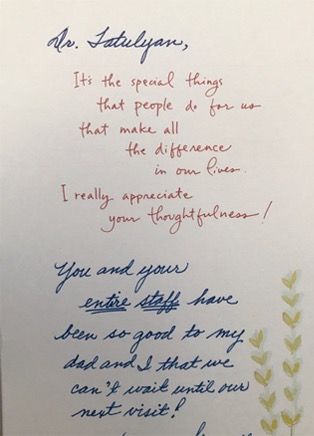 Dr. Tatulyan,
It's the special things
that people do for us
that make all
the difference
in our lives.
I really appreciate
your thoughtfulness!
You and your
entire staff have
been so good to my
dad and I that we
can't wait until our
next visit!